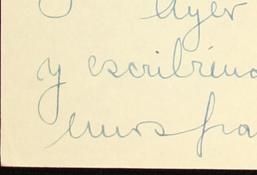 Ayer
y escribiend
unos fra